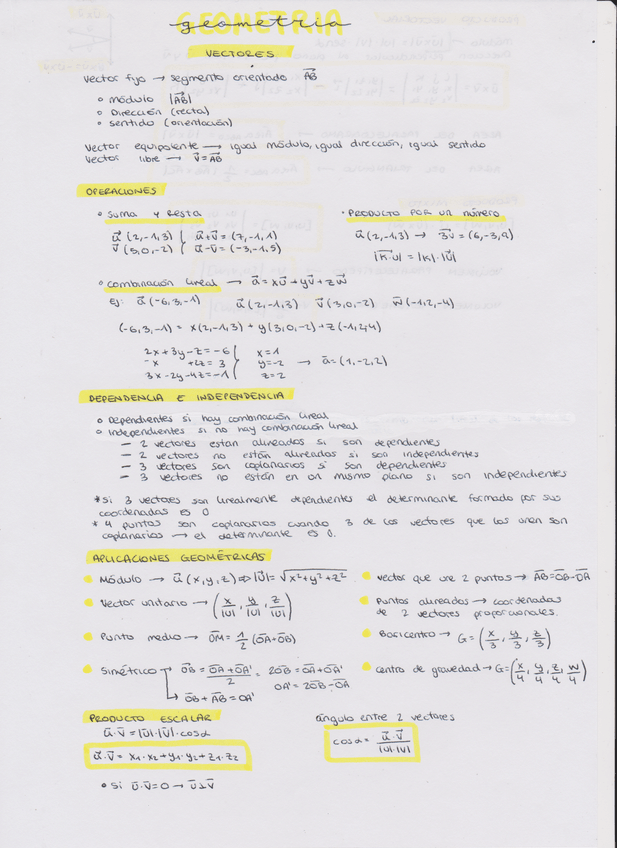 GEOMETRIA
geometria
VECTORES
Vector fijo → segmento orientado AB
o módulo |AB|
o Dirección (recta)
o sentido (orientación)
Vector equipolente → igual módulo, igual dirección, igual sentido
Vector libre → v̄ = AB
OPERACIONES
o suma y resta
u (2,-1,3) { u+v = (7,-1,1)
v (5,0,-2) { u-v = (-3,-1,5)
· PRODUCTO POR UN NÚMERO
u (2,-1,3) → 3v = (6,-3,9)
|K·u| = |K|·|u|
o combinación lineal → a = xu + yv + zw
Ej: a (-6,3,-1) u (2,-1,3) v (3,0,-2) w (-1,2,-4)
(-6,3,-1) = x(2,-1,3) + y(3,0,-2) + z(-1,2,4)
2x+3y-z=-6 } x=1
-x +2z=3 } y=-2 → a=(1,-2,2)
3x-2y-4z=-1 } z=2
DEPENDENCIA E INDEPENDENCIA
o Dependientes si hay combinación lineal
o Independientes si no hay combinación lineal
— 2 vectores estan alineados si son dependientes
— 2 vectores no están alineados si son independientes
— 3 vectores son coplanarios si son dependientes
— 3 vectores no están en un mismo plano si son independientes
* Si 3 vectores son linealmente dependientes el determinante formado por sus
coordenadas es 0
* 4 puntos son coplanarios cuando 3 de los vectores que los unen son
coplanarios → el determinante es 0.
APLICACIONES GEOMÉTRICAS
Módulo → u (x,y,z) ⇒ |u| = √x²+y²+z²
vector que une 2 puntos → AB=OB-OA
Vector unitario → (x/|u|, y/|u|, z/|u|)
Puntos alineados → coordenadas
de 2 vectores proporcionales.
Punto medio → OM = 1/2 (OA+OB)
Baricentro → G = (x/3, y/3, z/3)
Simétrico → OB = OA+OA'/2 = 2OB = OA+OA'
OA' = 2OB-OA
↳ OB+AB = OA'
centro de gravedad → G=(x/4, y/4, z/4, w/4)
PRODUCTO ESCALAR
u·v = |u|·|v|·cosα
u·v = x1·x2+y1·y2+z1·z2
o Si u·v=0 → u⊥v
ángulo entre 2 vectores
cosα = u·v/|u|·|v|